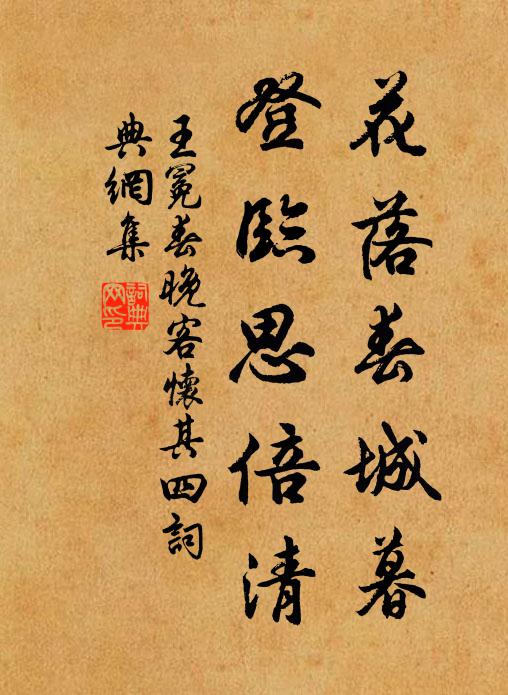 花落春城暮
登臨思倍清
王冕春晚客懷其四詞
典網集
詞典網印